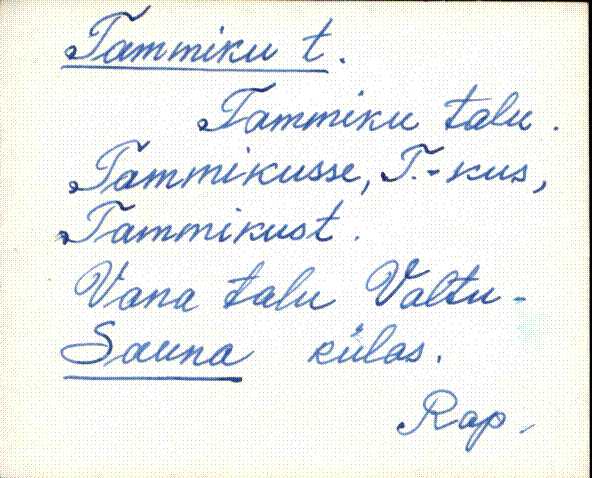 Tammiku t.
Tammiku talu.
Tammikusse, T.-kus,
Tammikust.
Vana talu Valtu-
Sauna külas.
Rap.